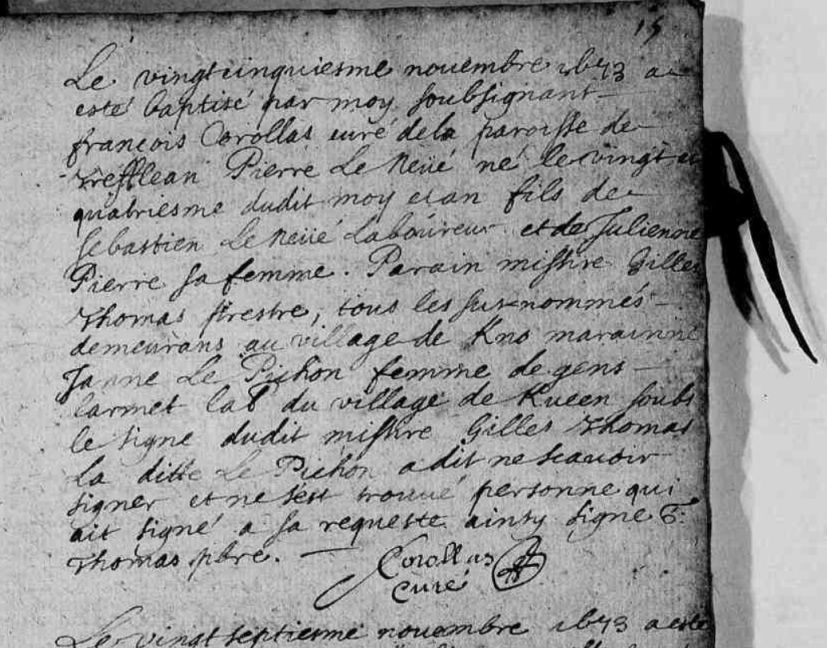 15
Le vingtcinquiesme novembre 1673 a
esté baptisé par moy soubsignant
françois Corollas curé dela paroisse de
Trefflean Pierre Le Neüé né le vingt et
quatriesme dudit moy et an fils de
Sebastien Le Neüé Laboureur et de Julienne
Pierre sa femme. Parain missire Gilles
Thomas prestre, tous les susnommés
demeurans au village de Kno marainne
Janne Le Pichon femme de gens
larmet lab du village de Kueen soubs
le signe dudit missire Gilles Thomas
La ditte Le Pichon a dit ne scavoir
signer et ne sest trouué personne qui
ait signé a sa requeste ainsy signe G:
Thomas pbre.
Corollas
Curé
Le vingt septiesme novembre 1673 a esté